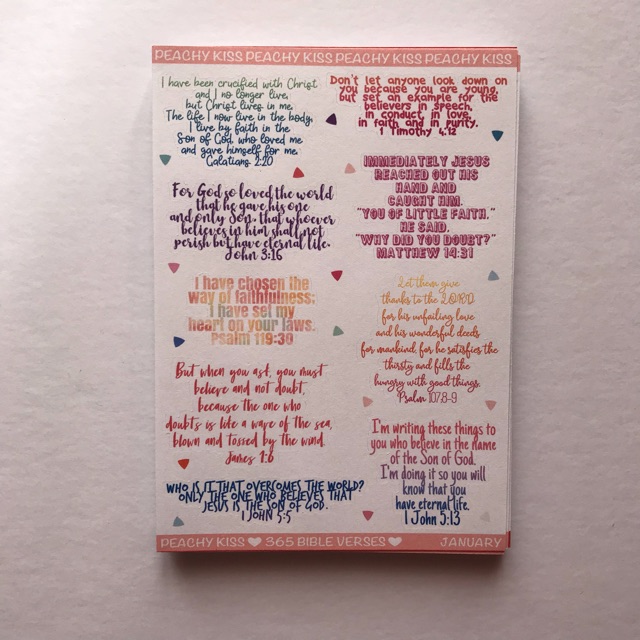 PEACHY KISS PEACHY KISS PEACHY KISS PEACHY KISS
I have been crucified with Christ
and I no longer live,
but Christ lives in me.
The life I now live in the body,
I live by faith in the
Son of God, who loved me
and gave himself for me.
Galatians 2:20
For God so loved the world
that he gave his one
and only Son, that whoever
believes in him shall not
perish but have eternal life.
John 3:16
I have chosen the
way of faithfulness;
I have set my
heart on your laws.
Psalm 119:30
But when you ask, you must
believe and not doubt,
because the one who
doubts is like a wave of the sea,
blown and tossed by the wind.
James 1:6
WHO IS IT THAT OVERCOMES THE WORLD?
ONLY THE ONE WHO BELIEVES THAT
JESUS IS THE SON OF GOD.
1 JOHN 5:5
Don't let anyone look down on
you because you are young,
but set an example for the
believers in speech,
in conduct, in love,
in faith and in purity.
1 Timothy 4:12
IMMEDIATELY JESUS
REACHED OUT HIS
HAND AND
CAUGHT HIM.
"YOU OF LITTLE FAITH,"
HE SAID,
"WHY DID YOU DOUBT?"
MATTHEW 14:31
Let them give
thanks to the LORD
for his unfailing love
and his wonderful deeds
for mankind, for he satisfies the
thirsty and fills the
hungry with good things.
Psalm 107:8-9
I'm writing these things to
you who believe in the name
of the Son of God.
I'm doing it so you will
know that you
have eternal life.
1 John 5:13
PEACHY KISS ♥ 365 BIBLE VERSES ♥ JANUARY